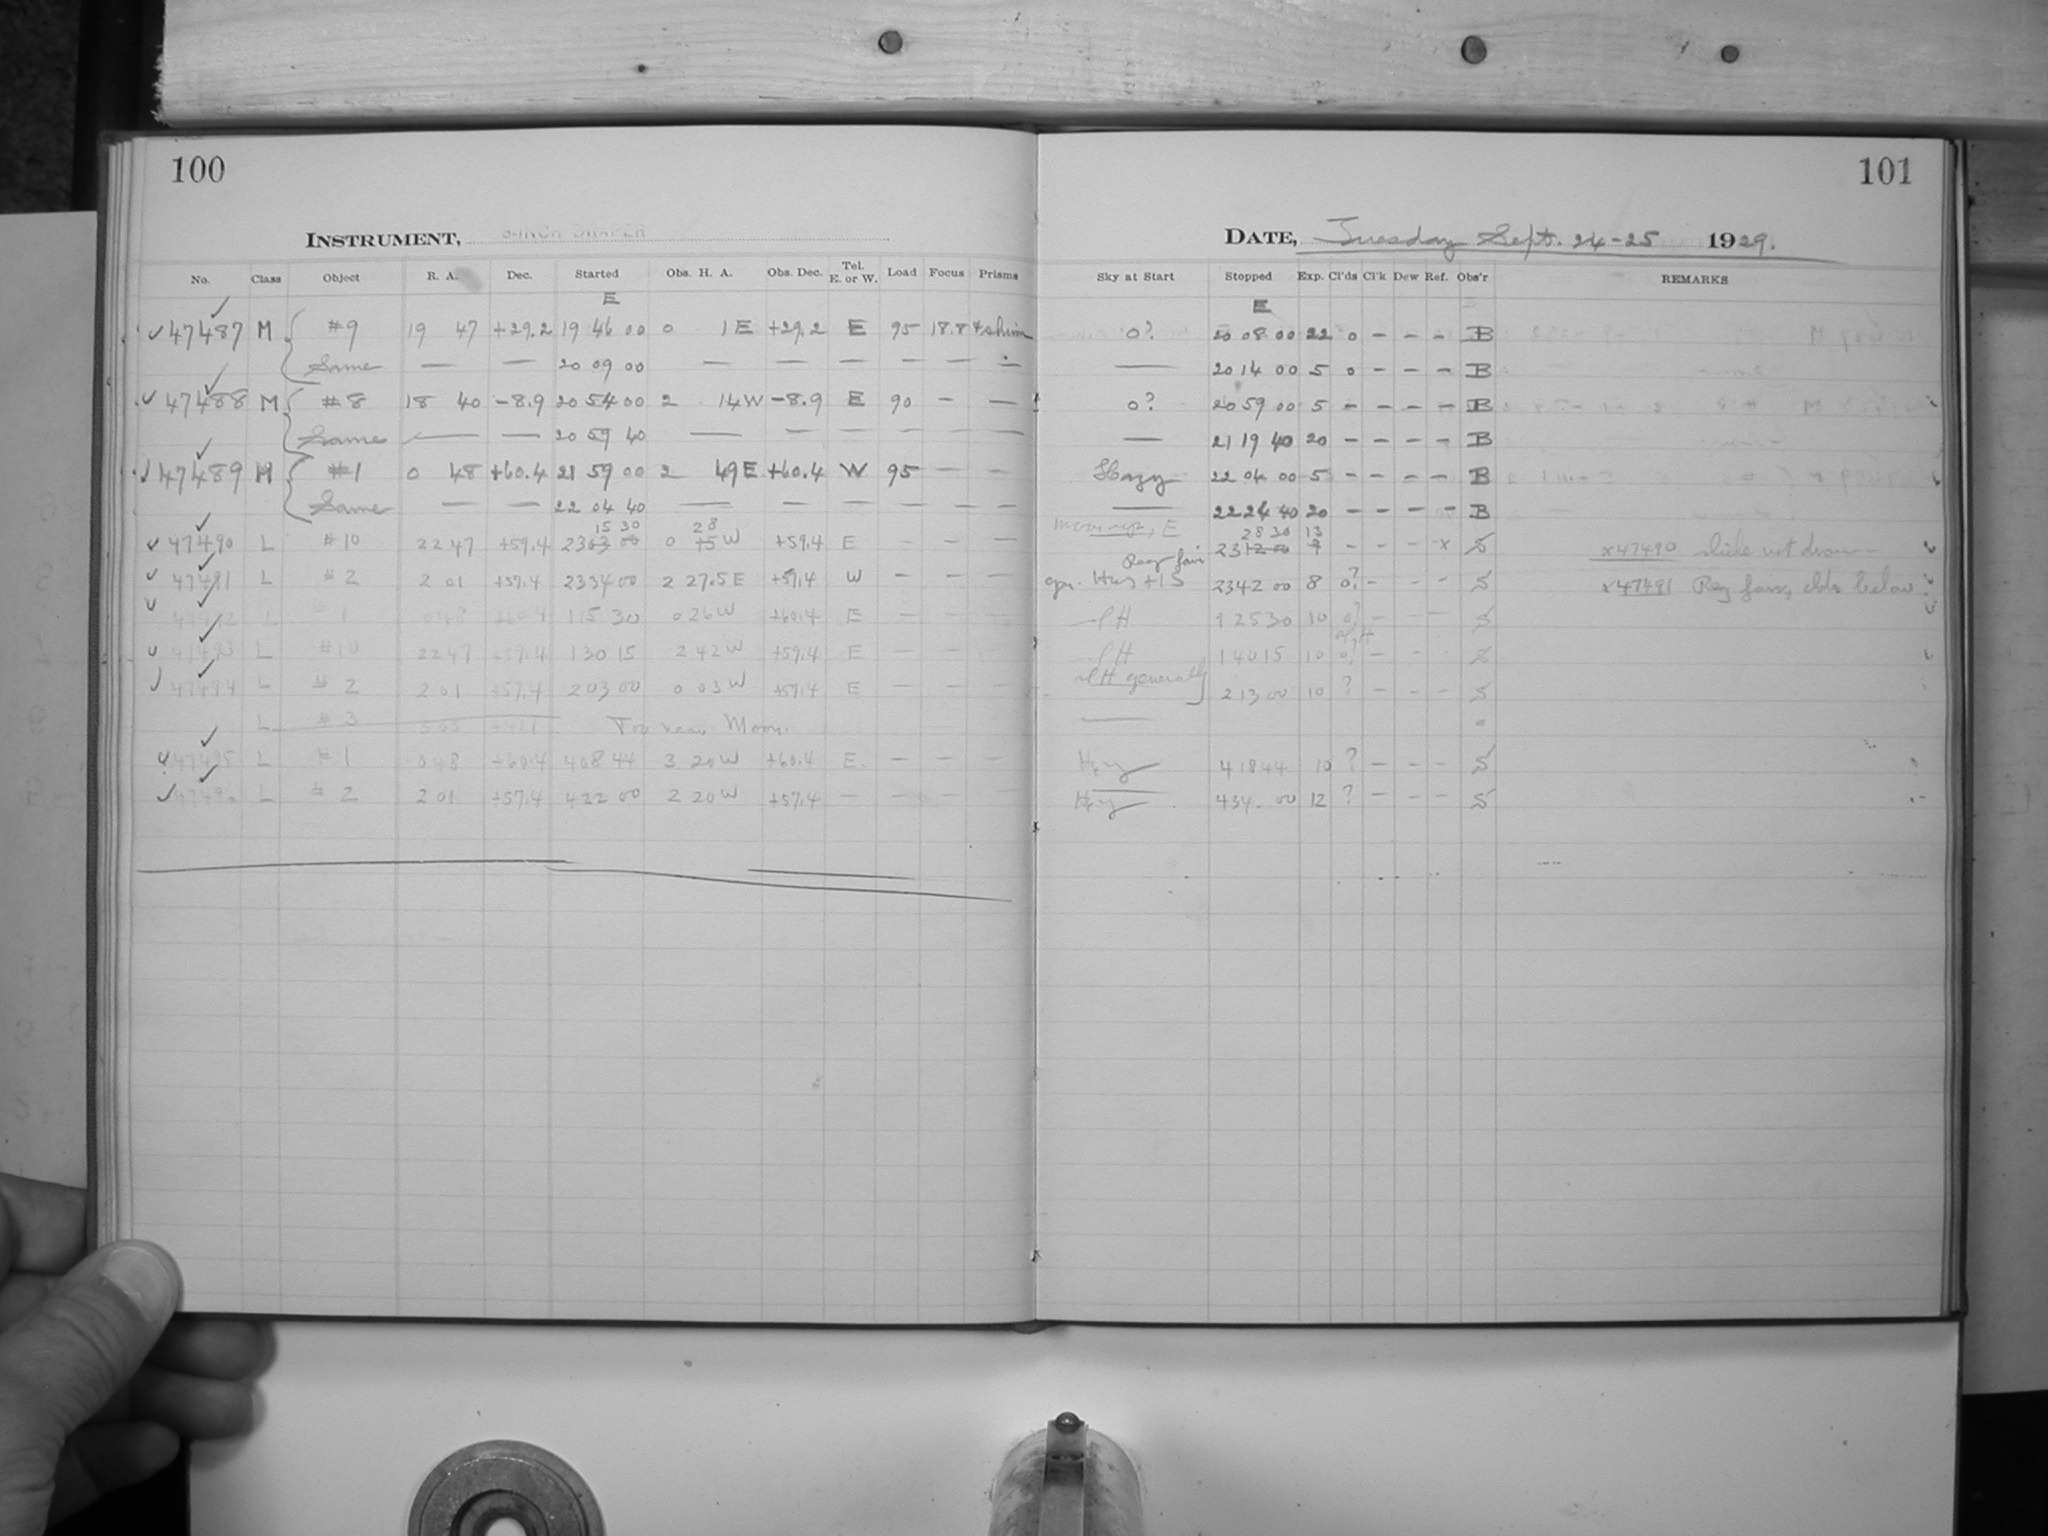 100
INSTRUMENT, 8-INCH DRAPER
No. Class Object R. A. Dec. Started Obs. H. A. Obs. Dec. Tel. E. or W. Load Focus Prisms
E
✓47487 M #9 19 47 +29.2 19 46 00 0 1 E +29.2 E 95 18.8
Same — — 20 09 00 — — — — — —
✓47488 M #8 18 40 -8.9 20 54 00 2 14 W -8.9 E 90 — —
Same — — 20 59 40 — — — — — —
✓47489 M #1 0 48 +60.4 21 59 00 2 49 E +60.4 W 95 — —
Same — — 22 04 40 — — — — — —
15 30 28
✓47490 L #10 22 47 +59.4 23 03 00 0 15 W +59.4 E — — —
✓47491 L #2 2 01 +57.4 23 34 00 2 27.5 E +57.4 W — — —
✓47492 L 1 0 48 +60.4 1 15 30 0 26 W +60.4 E — — —
✓47493 L #10 22 47 +59.4 1 30 15 2 42 W +59.4 E — — —
✓47494 L #2 2 01 +57.4 2 03 00 0 03 W +57.4 E — — —
L #3 Too near Moon.
✓47495 L #1 0 48 +60.4 4 08 44 3 20 W +60.4 E — — —
✓47496 L #2 2 01 +57.4 4 22 00 2 20 W +57.4 — — — —
101
DATE, Tuesday Sept. 24-25 1929.
Sky at Start Stopped Exp. Cl'ds Cl'k Dew Ref. Obs'r REMARKS
E
0? 20 08 00 22 0 — — — B
— 20 14 00 5 0 — — — B
0? 20 59 00 5 — — — — B
— 21 19 40 20 — — — — B
Hazy 22 04 00 5 — — — — B
— 22 24 40 20 — — — — B
Moon up, E 28 30 13
23 12 00 9 — — — x S x47490 slide not drawn
Reg fair
Hzy +15 23 42 00 8 0? — — — S x47491 Reg fair, clds below
H 1 25 30 10 0? — — — S
H 1 40 15 10 0? — — — S
H generally 2 13 00 10 ? — — — S
—
Hzy 4 18 44 10 ? — — — S
Hzy 4 34 00 12 ? — — — S